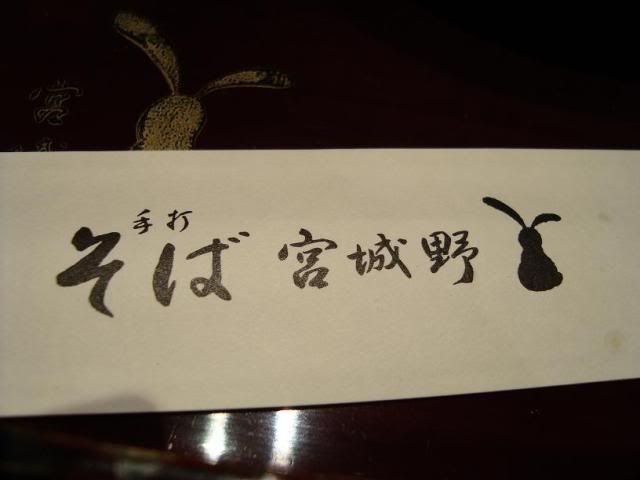 手打
そば 宮城野
宮